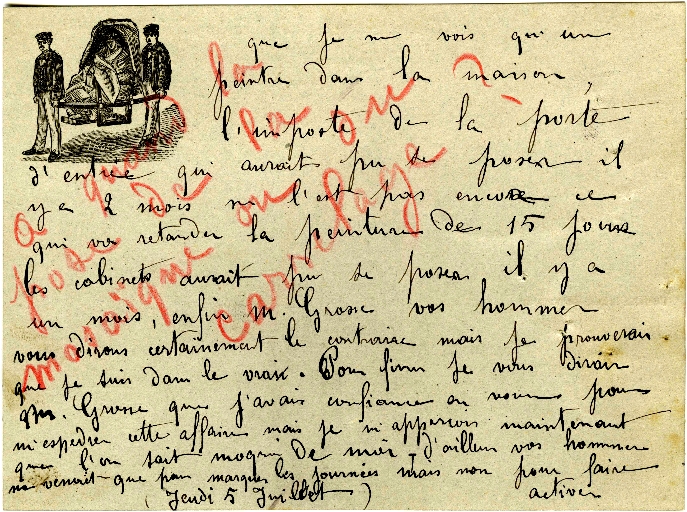 que je ne vois qu'un
peintre dans la maison,
l'imposte de la porte
d'entrée qui aurait pu se poser il
y a 2 mois ne l'est pas encore ce
qui va retarder la peinture de 15 jours
les cabinets aurait pu se poser il y a
un mois, enfin M. Grosse vos hommer
vous dirons certainement le contraire mais je prouverais
que je suis dans le vrais. Pour finir je vous dirais
M. Grosse que j'avais confiance en vous pour
m'espedier cette affaire mais je m'apperçois maintenant
que l'on sait moquer de moi, d'ailleur vos hommer
ne venait que pour marquer les journées mais non pour faire
activer
(Jeudi 5 Juillet)
a quand la
pose de la ou
mosaïque ou
carrelage